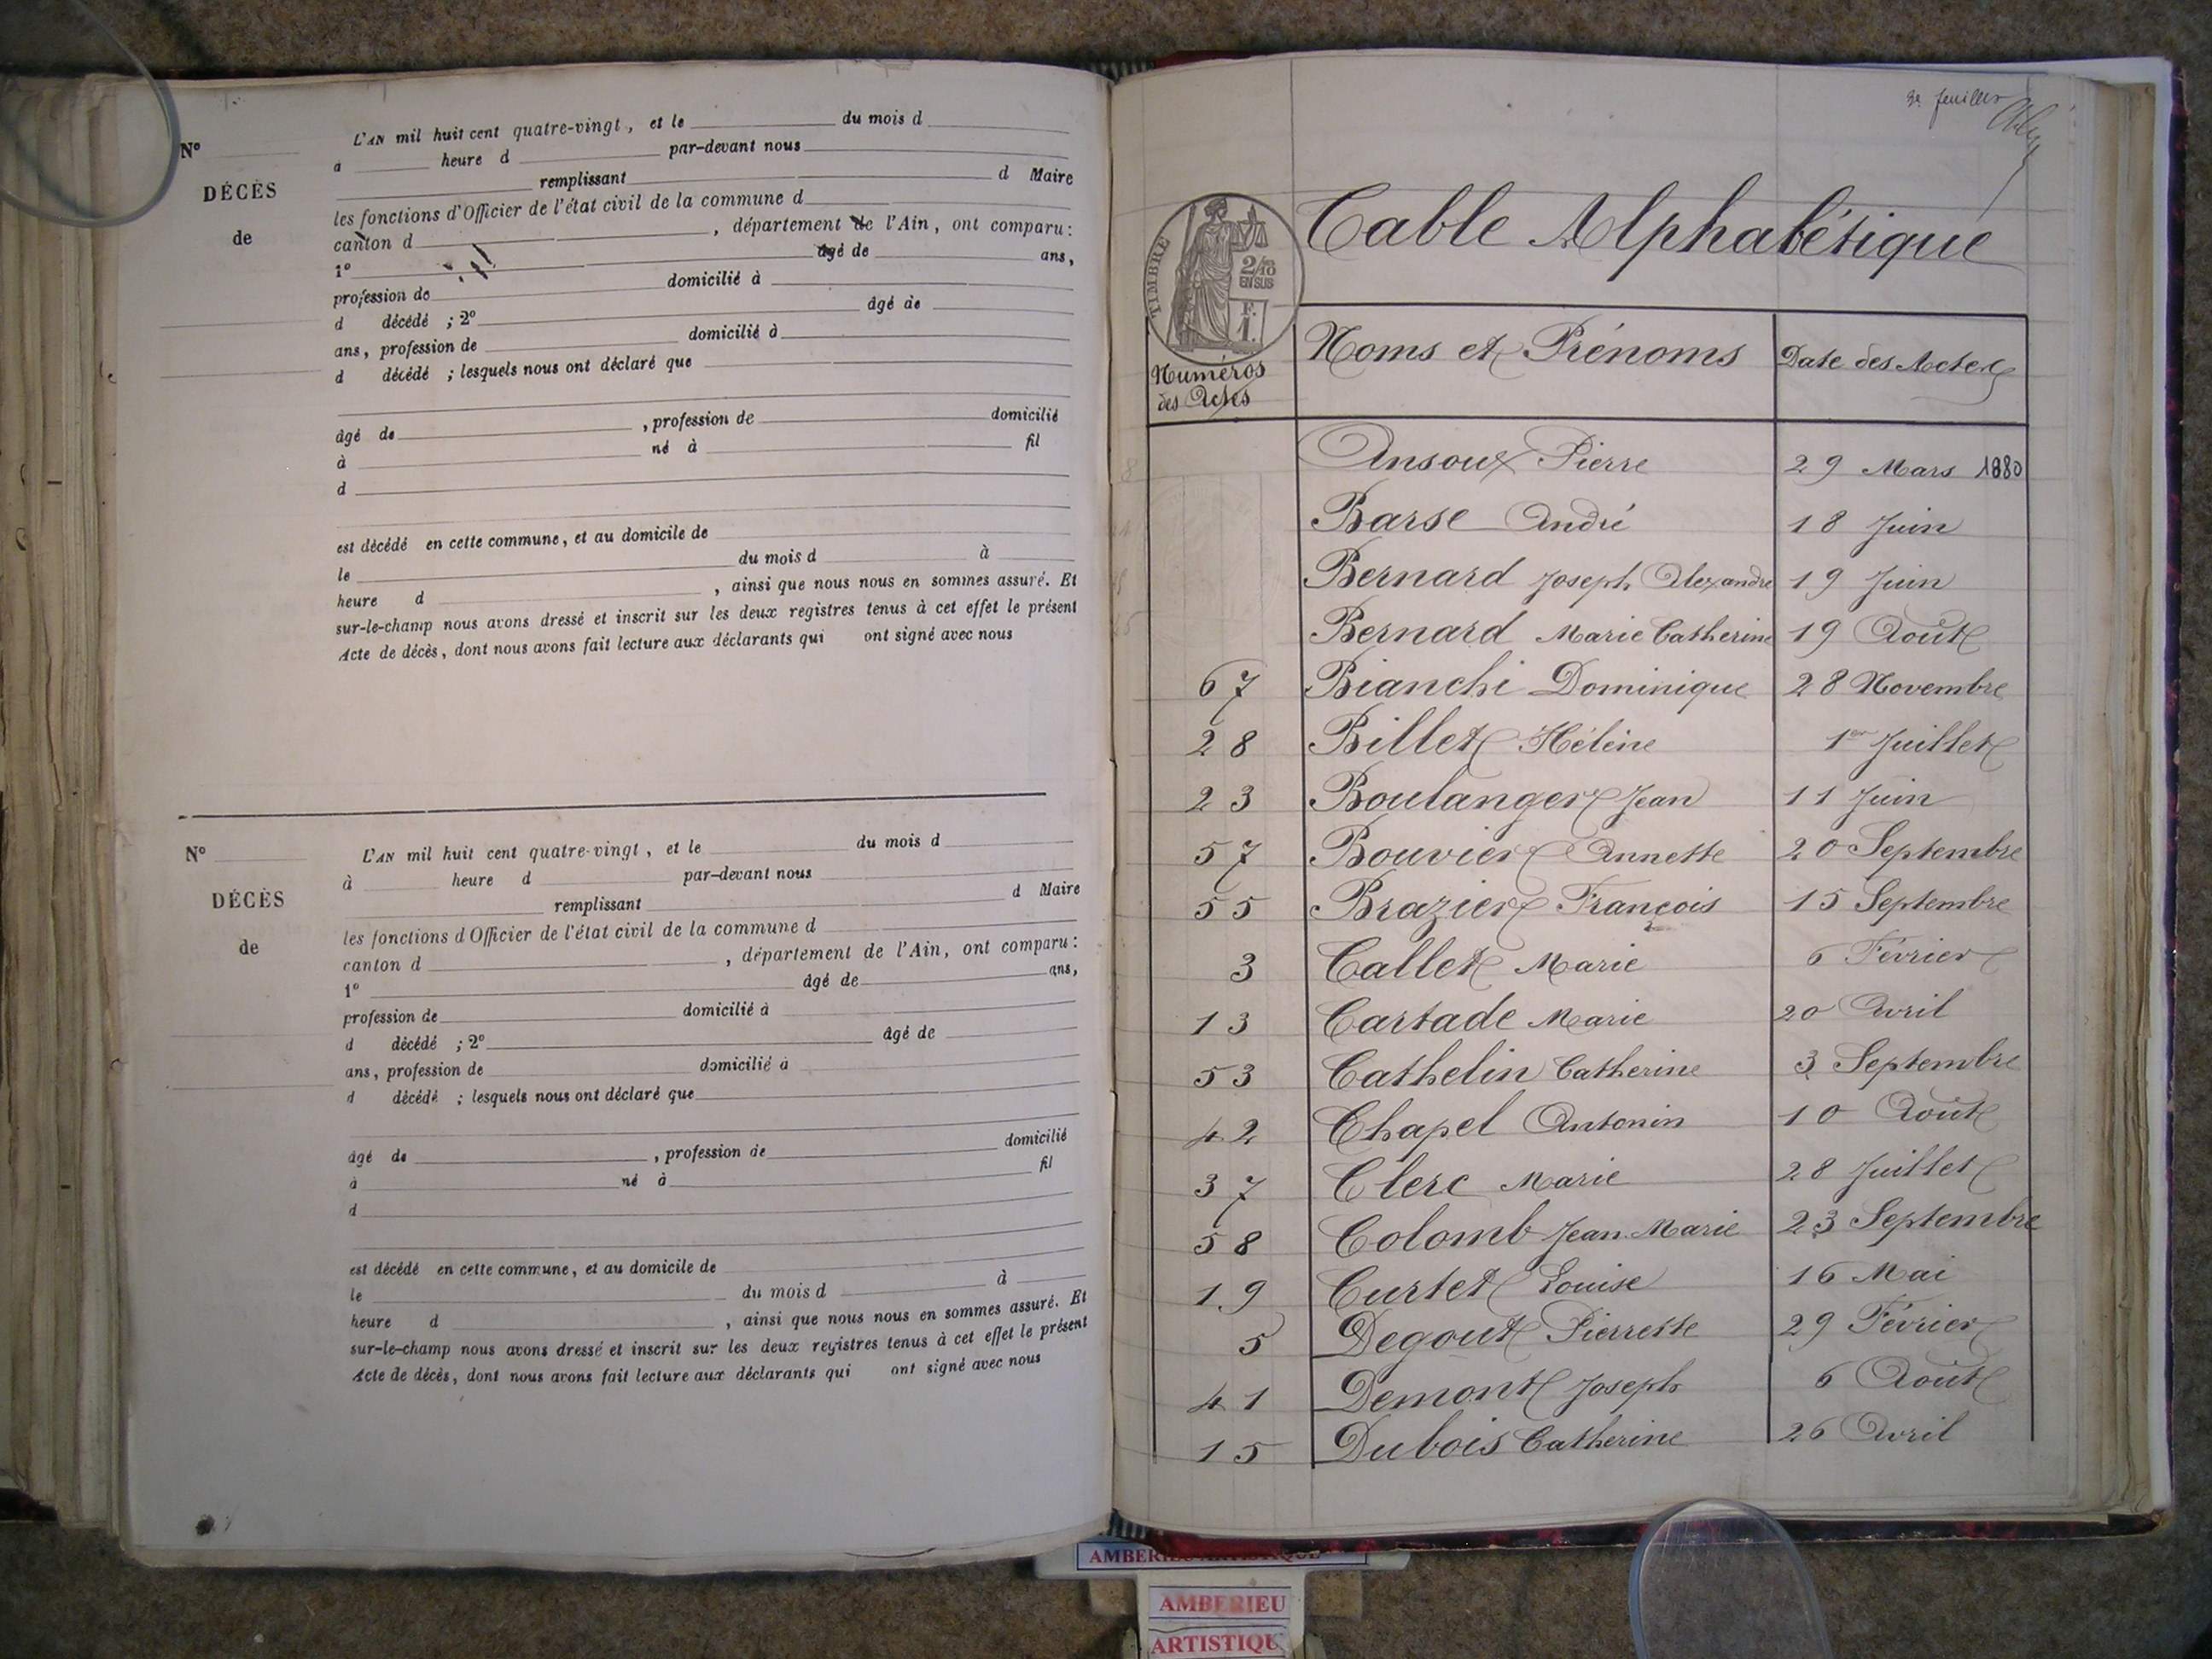 N°
DÉCÈS
de
L'AN mil huit cent quatre-vingt, et le du mois d
a heure d par-devant nous
remplissant d Maire
les fonctions d'Officier de l'état civil de la commune d
canton d , département de l'Ain, ont comparu:
1° âgé de ans,
profession de domicilié à
d décédé ; 2° âgé de
ans, profession de domicilié à
d décédé ; lesquels nous ont déclaré que
âgé de , profession de domicilié
à né à fil
d
est décédé en cette commune, et au domicile de
le du mois d à
heure d , ainsi que nous nous en sommes assuré. Et
sur-le-champ nous avons dressé et inscrit sur les deux registres tenus à cet effet le présent
Acte de décès, dont nous avons fait lecture aux déclarants qui ont signé avec nous
N°
DÉCÈS
de
L'AN mil huit cent quatre-vingt, et le du mois d
à heure d par-devant nous
remplissant d Maire
les fonctions d'Officier de l'état civil de la commune d
canton d , département de l'Ain, ont comparu:
1° âgé de ans,
profession de domicilié à
d décédé ; 2° âgé de
ans, profession de domicilié à
d décédé ; lesquels nous ont déclaré que
âgé de , profession de domicilié
à né à fil
d
est décédé en cette commune, et au domicile de
le du mois d à
heure d , ainsi que nous nous en sommes assuré. Et
sur-le-champ nous avons dressé et inscrit sur les deux registres tenus à cet effet le présent
Acte de décès, dont nous avons fait lecture aux déclarants qui ont signé avec nous
3e feuillet
Table Alphabétique
TIMBRE
2/10
EN SUS
F.
1.
Numéros des Actes
Noms et Prénoms
Date des Actes
Ansoux Pierre 29 Mars 1880
Barse André 18 Juin
Bernard Joseph Alexandre 19 Juin
Bernard Marie Catherine 19 Août
67 Bianchi Dominique 28 Novembre
28 Billet Hélène 1er Juillet
23 Boulanger Jean 11 Juin
57 Bouvier Annette 20 Septembre
55 Brazier François 15 Septembre
3 Callet Marie 6 Février
13 Cartade Marie 20 Avril
53 Cathelin Catherine 3 Septembre
42 Chapel Antonin 10 Août
37 Clerc Marie 28 Juillet
58 Colomb Jean Marie 23 Septembre
19 Curtet Louise 16 Mai
5 Degout Pierrette 29 Février
41 Demont Joseph 6 Août
15 Dubois Catherine 26 Avril
AMBERIEU ARTISTIQUE
AMBERIEU
ARTISTIQU